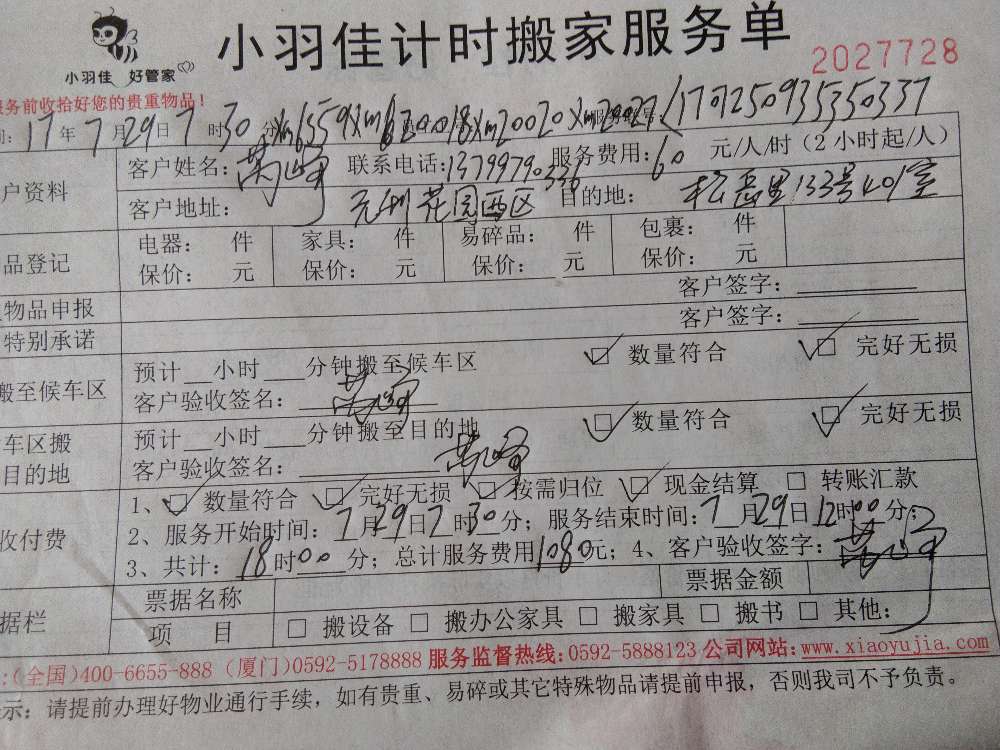 小羽佳计时搬家服务单
小羽佳 好管家
2027728
服务前收拾好您的贵重物品!
17年7月29日7时30分 Xm6559 Xm62001 18 Xm20020 Xm20027 / 1707250935350337
户资料 客户姓名: 联系电话:13799790336 服务费用:60 元/人/时(2小时起/人)
客户地址: 元州花园西区 目的地: 松岳里133号401室
品登记 电器: 件 家具: 件 易碎品: 件 包裹: 件
保价: 元 保价: 元 保价: 元 保价: 元
物品申报 客户签字:
特别承诺 客户签字:
搬至候车区 预计 小时 分钟搬至候车区 数量符合 完好无损
客户验收签名:
车区搬 预计 小时 分钟搬至目的地 数量符合 完好无损
目的地 客户验收签名:
收付费 1、 数量符合 完好无损 按需归位 现金结算 转账汇款
2、服务开始时间:7月29日7时30分;服务结束时间:7月29日12时00分;
3、共计:18时00分;总计服务费用1080元;4、客户验收签字:
据栏 票据名称 票据金额
项 目 搬设备 搬办公家具 搬家具 搬书 其他:
:(全国)400-6655-888(厦门)0592-5178888 服务监督热线:0592-5888123 公司网站:www.xiaoyujia.com
示:请提前办理好物业通行手续,如有贵重、易碎或其它特殊物品请提前申报,否则我司不予负责。